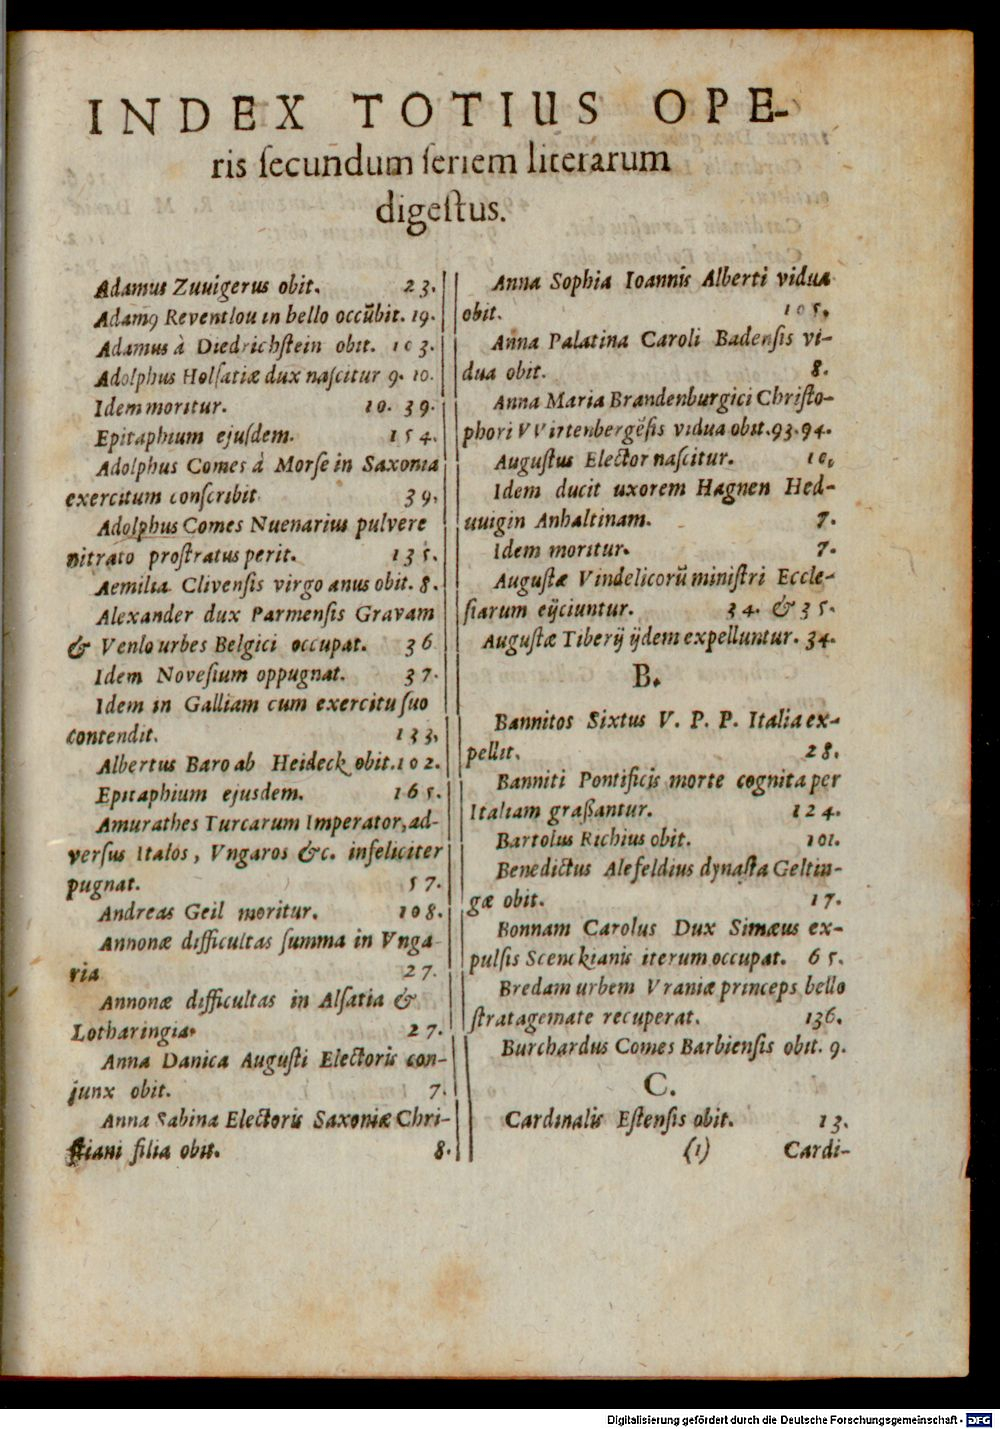 INDEX TOTIUS OPE-
ris ſecundum ſeriem literarum
digeſtus.
Adamus Zuuigerus obit. 23.
Adamꝰ Reventlou in bello occūbit. 19.
Adamus à Diedrichſtein obit. 103.
Adolphus Holſatiæ dux naſcitur 9. 10.
Idem moritur. 10. 39.
Epitaphium ejuſdem. 154.
Adolphus Comes à Morſe in Saxonia
exercitum conſcribit 39.
Adolphus Comes Nuenarius pulvere
nitrato proſtratus perit. 135.
Aemilia Clivenſis virgo anus obit. 8.
Alexander dux Parmenſis Gravam
& Venlo urbes Belgici occupat. 36
Idem Noveſium oppugnat. 37.
Idem in Galliam cum exercitu ſuo
contendit. 133.
Albertus Baro ab Heideck obit. 102.
Epitaphium ejusdem. 165.
Amurathes Turcarum Imperator, ad-
verſus Italos, Vngaros &c. infeliciter
pugnat. 57.
Andreas Geil moritur. 108.
Annonæ difficultas ſumma in Vnga
ria 27.
Annonæ difficultas in Alſatia &
Lotharingia. 27.
Anna Danica Auguſti Electoris con-
junx obit. 7.
Anna Sabina Electoris Saxoniæ Chri-
ſtiani filia obit. 8.
Anna Sophia Ioannis Alberti vidua
obit. 105.
Anna Palatina Caroli Badenſis vi-
dua obit. 8.
Anna Maria Brandenburgici Chriſto-
phori VVirtenbergēſis vidua obit. 93. 94.
Auguſtus Elector naſcitur. 10.
Idem ducit uxorem Hagnen Hed-
uuigin Anhaltinam. 7.
Idem moritur. 7.
Auguſtæ Vindelicorū miniſtri Eccle-
ſiarum eijciuntur. 34. & 35.
Auguſtæ Tiberij ijdem expelluntur. 34.
B.
Bannitos Sixtus V. P. P. Italia ex-
pellit. 28.
Banniti Pontificis morte cognita per
Italiam graßantur. 124.
Bartolus Richius obit. 101.
Benedictus Alefeldius dynaſta Geltin-
gæ obit. 17.
Bonnam Carolus Dux Simæus ex-
pulſis Scenckianis iterum occupat. 65.
Bredam urbem Vraniæ princeps bello
ſtratagemate recuperat. 136.
Burchardus Comes Barbienſis obit. 9.
C.
Cardinalis Eſtenſis obit. 13.
(1) Cardi-
Digitalisierung gefördert durch die Deutsche Forschungsgemeinschaft - DFG